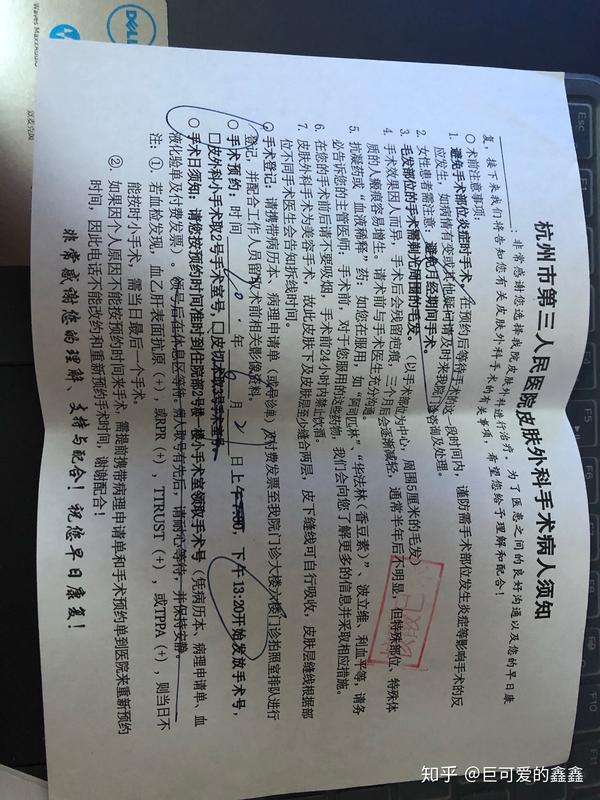 杭州市第三人民医院皮肤外科手术病人须知
：非常感谢您选择我院皮肤外科进行治疗，为了医患之间的良好沟通以及您的早日康
复，接下来我们将告知您有关皮肤外科手术的有关事项，希望您给予理解和配合！
○ 术前注意事项：
1. 避免手术部位炎症时手术，在预约后等待手术的这一段时间内，谨防需手术部位发生炎症等影响手术的反
应发生，如病情有变或其他疑问请及时来我院门诊咨询及处理。
2. 女性患者需注意，避免月经期间手术。
3. 毛发部位的手术需剃光周围的毛发。（以手术部位为中心，周围5厘米的毛发）
4. 手术效果因人而异，手术后会残留疤痕，三个月后会逐渐减轻，通常半年后不明显，但特殊部位，特殊体
质的人瘢痕容易增生。请术前与手术医生充分沟通。
5. 抗凝药或“血液稀释”药：如您在服用，如“阿司匹林”、“华法林（香豆素）”、波立维、利血平等，请务
必告诉您的主管医师：手术前，对于您服用的这些药物，我们会向您了解更多的信息并采取相应措施。
6. 在您的手术前后请不要吸烟，手术前24小时内禁止饮酒。
7. 皮肤外科手术为美容手术，故此皮肤下及皮肤层至少缝合两层，皮下缝线可自行吸收，皮肤层缝线根据部
位不同手术医生会告知拆线时间。
○ 手术登记：请携带病历本、病理申请单（或导诊单）及付费发票至我院门诊大楼六楼门诊拍照室排队进行
登记，并配合工作人员留取术前相关影像资料。
○ 手术预约：时间 年 月 21 日上午7:30，下午13:20开始发放手术号，
□皮外科小手术取2号手术室号，□皮切术取3号手术室号。
○ 手术日须知：请您按预约时间准时到住院部2号楼一楼小手术室领取手术号（凭病历本、病理申请单、血
液化验单及付费发票）。领号后在休息区等待。需大取号有先后，请耐心等待，并保持安静。
注：①. 若血检发现，血乙肝表面抗原（+），或RPR（+），TTRUST（+），或TPPA（+），则当日不
能按时小手术，需当日最后一个手术。
②. 如果因个人原因不能按预约时间来手术，需提前携带病理申请单和手术预约单到医院来重新预约
时间，因此电话不能改约和重新预约手术时间，谢谢配合！
非常感谢您的理解、支持与配合！祝您早日康复！
DELL
Waves MaxxAudio
Esc
F5
F6
F7
F8
F9
F10
F11
知乎 @巨可爱的鑫鑫